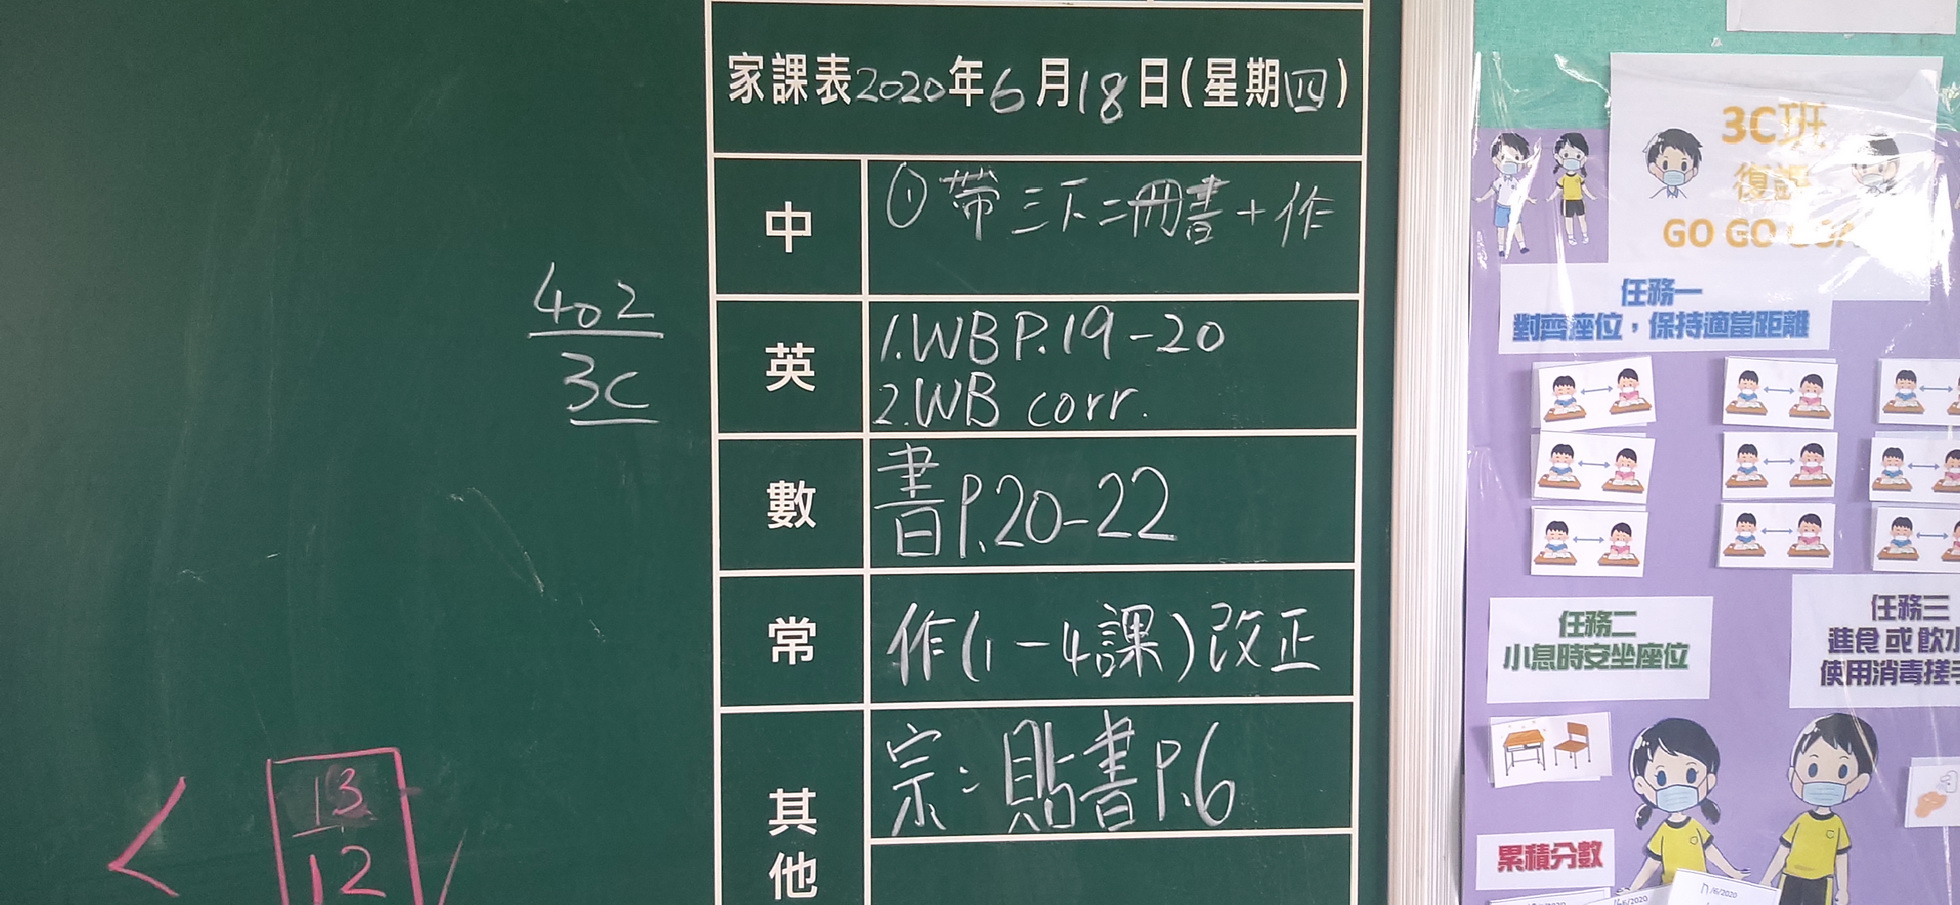 家課表2020年6月18日(星期四)
中
①帶三下二冊書+作
英
1.WB P.19-20
2.WB corr.
數
書P.20-22
常
作(1-4課)改正
其他
宗:貼書P.6
402
3C
<
13
12
3C班
復課
GO GO
任務一
對齊座位，保持適當距離
任務二
小息時安坐座位
任務三
進食或飲水
使用消毒搓手
累積分數